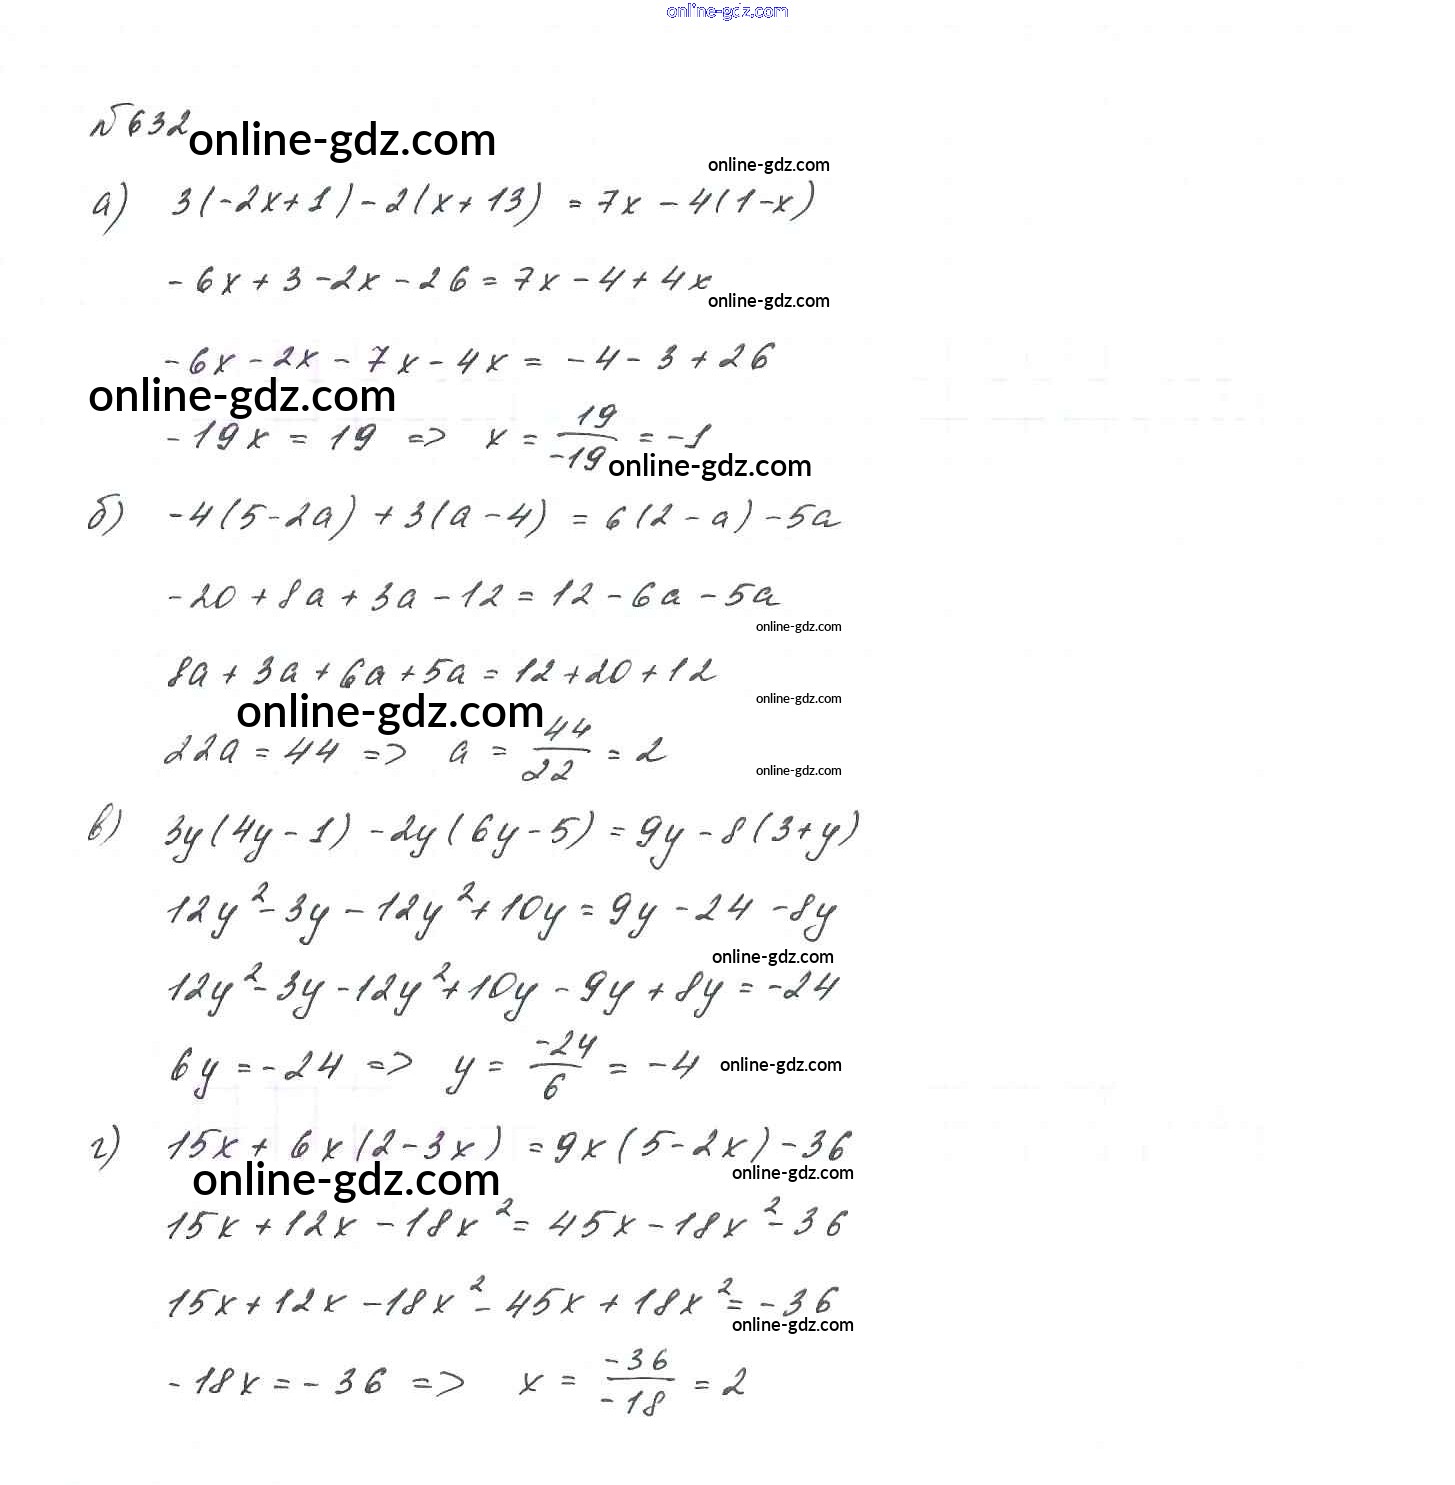 online-gdz.com
№632
online-gdz.com
online-gdz.com
а) 3(-2x+1)-2(x+13) = 7x-4(1-x)
-6x+3-2x-26=7x-4+4x
online-gdz.com
-6x-2x-7x-4x = -4-3+26
online-gdz.com
-19x = 19 => x = 19/-19 = -1
online-gdz.com
б) -4(5-2a)+3(a-4) = 6(2-a)-5a
-20+8a+3a-12=12-6a-5a
online-gdz.com
8a+3a+6a+5a=12+20+12
online-gdz.com
online-gdz.com
22a=44 => a = 44/22 = 2
online-gdz.com
в) 3y(4y-1)-2y(6y-5)=9y-8(3+y)
12y²-3y-12y²+10y=9y-24-8y
online-gdz.com
12y²-3y-12y²+10y-9y+8y=-24
6y=-24 => y = -24/6 = -4
online-gdz.com
г) 15x+6x(2-3x) =9x(5-2x)-36
online-gdz.com
online-gdz.com
15x+12x-18x²=45x-18x²-36
15x+12x-18x²-45x+18x²=-36
online-gdz.com
-18x=-36 => x = -36/-18 = 2